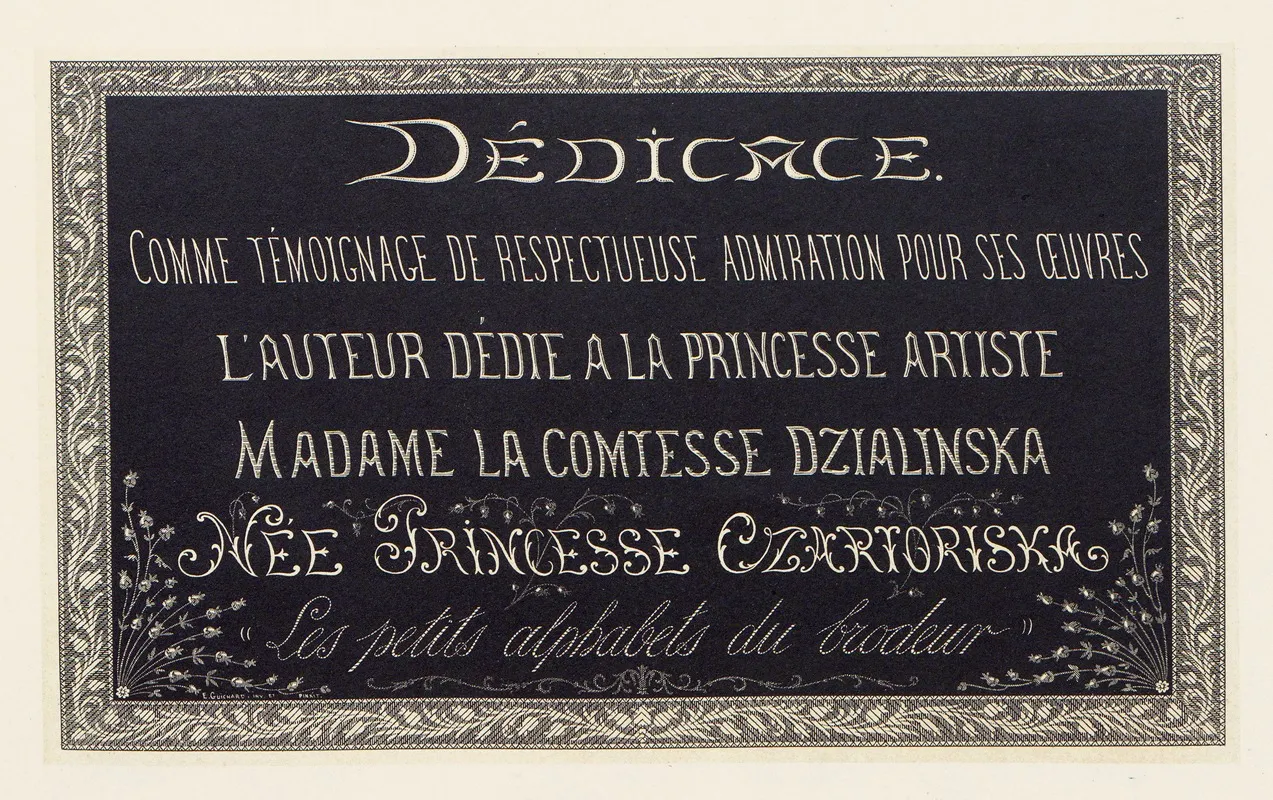 DÉDICACE.
COMME TÉMOIGNAGE DE RESPECTUEUSE ADMIRATION POUR SES ŒUVRES
L'AUTEUR DÉDIE A LA PRINCESSE ARTISTE
MADAME LA COMTESSE DZIALINSKA
NÉE PRINCESSE CZARTORISKA
“Les petits alphabets du brodeur”
E. GUICHARD. INV. ET PINXIT.